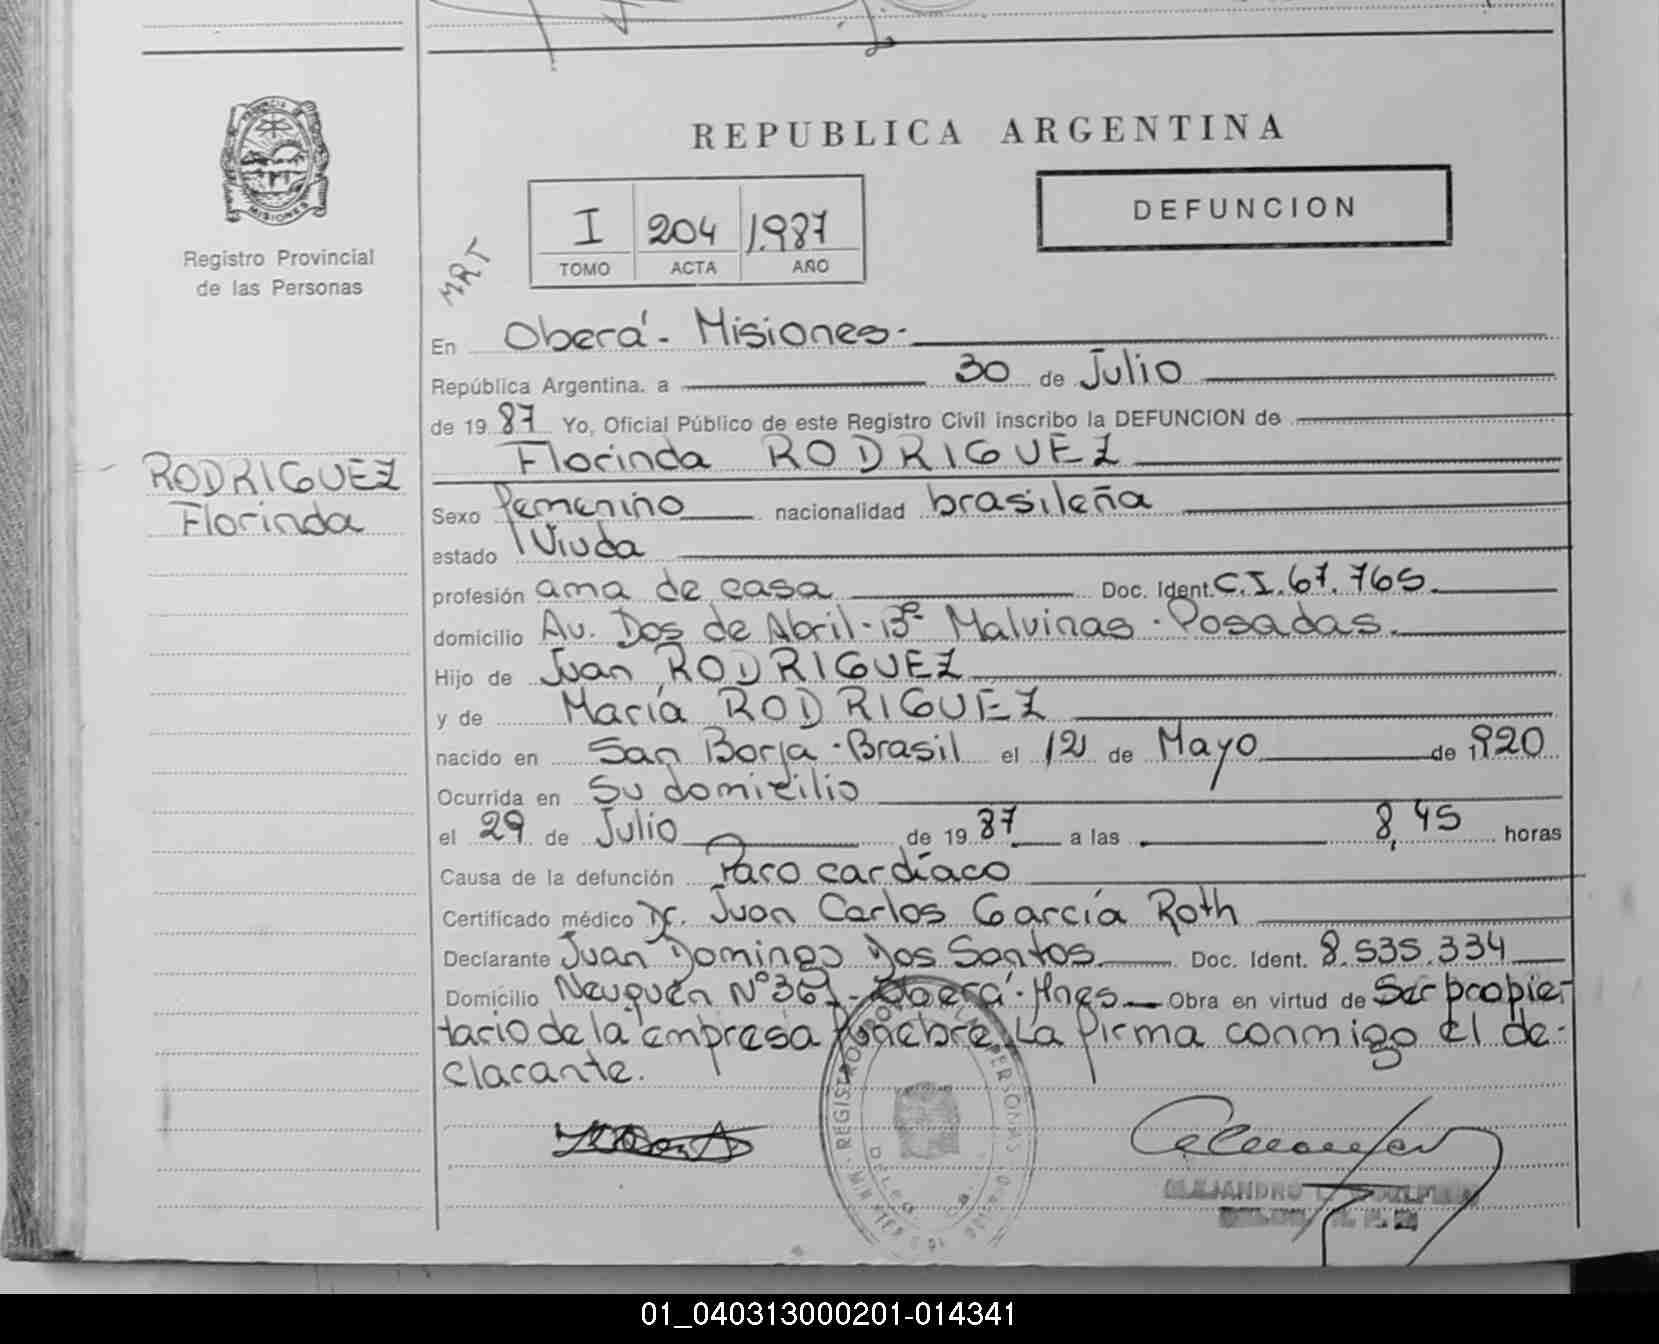 REPUBLICA ARGENTINA
DEFUNCION
PROVINCIA DE
MISIONES
Registro Provincial
de las Personas
I 204 1.987
TOMO ACTA AÑO
MRT
En Oberá - Misiones -
República Argentina. a 30 de Julio
de 19 87 Yo, Oficial Público de este Registro Civil inscribo la DEFUNCION de
Florinda RODRIGUEZ
RODRIGUEZ
Florinda
Sexo femenino nacionalidad brasileña
estado Viuda
profesión ama de casa Doc. Ident. C.I. 67.765
domicilio Av. Dos de Abril - Malvinas - Posadas.
Hijo de Juan RODRIGUEZ
y de María RODRIGUEZ
nacido en San Borja - Brasil el 12 de Mayo de 1920
Ocurrida en Su domicilio
el 29 de Julio de 19 87 a las 8,45 horas
Causa de la defunción Paro cardíaco
Certificado médico Dr. Juan Carlos García Roth
Declarante Juan Domingo Dos Santos Doc. Ident. 8.535.334
Domicilio Neuquén Nº 361 - Oberá - Mnes Obra en virtud de Ser propie-
tario de la empresa fúnebre. La firma conmigo el de-
clarante.
REGISTRO DE LAS PERSONAS
ALEJANDRO
01_040313000201-014341